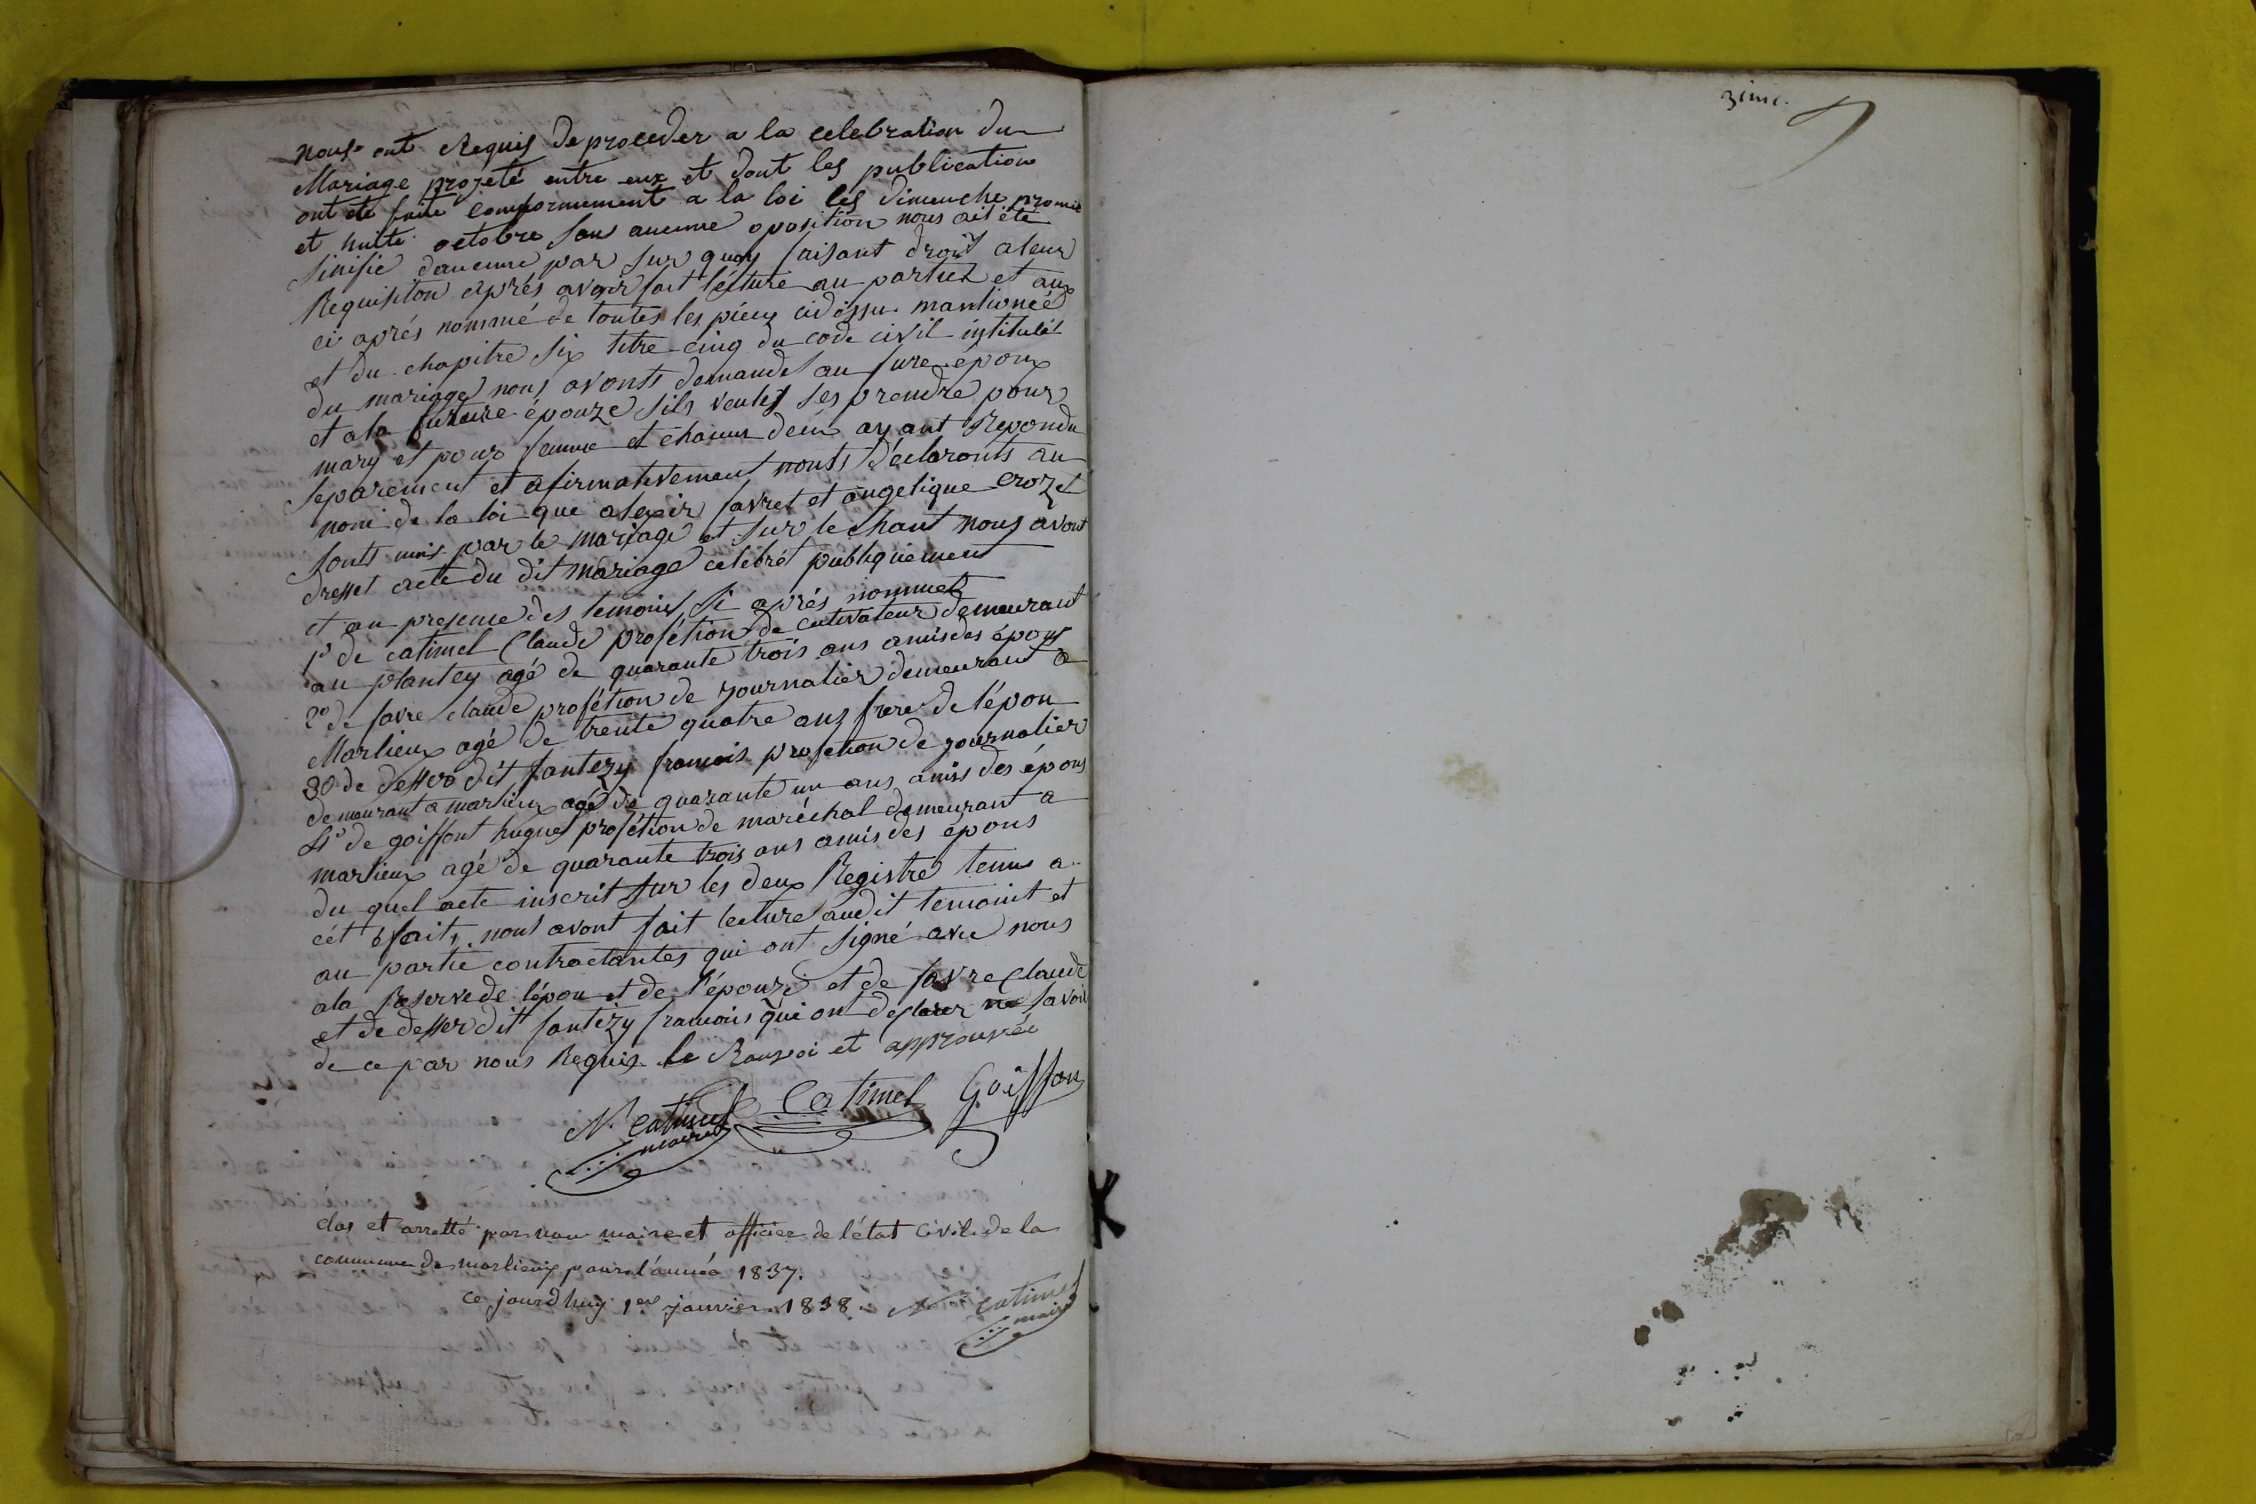 nous ont Requis de proceder a la celebration du
Mariage projeté entre eux et dont les publication
ont été faite conformement a la loi les dimenche premie
et huite octobre san aucune oposition nous ait été
sinifié daucune par sur quoy faisant droit a leur
Requisiton aprés avoir fait lecture au partiez et aux
ci aprés nommé de toutes les pieces cidessu mantioneé
et du chapitre six titre cinq du code civil intitulét
du mariage nous avonts demandé au fure époux
et a la future épouze sils veules ses prendre pour
mary et pour femme et chacun deux ayant Repondu
separement et afirmativement nouts déclaronts au
nom de la loi que alexis favret et angelique crozet
sonts unis par le mariage et sur le chant nous avont
dresset acte du dit mariage celebrét publiquement
et au presence des temoins si aprés nommez
1º de catimel Claude profétion de cutivateur demeurant
au plantey agé de quarante trois ans amis des époux
2º de favre claude profétion de journalier demeurant a
Marlieux agé de trente quatre ans frere de l'épou
3º de desser dit fantezy francois profetion de journalier
demeurant a marlieux agé de quarante un ans amis des épous
4º de goiffont hugues profétion de maréchal demeurant a
marlieux agé de quarante trois ans amis des épous
du quel acte inscrit sur les deux Registre tenu a
cét éfait, nous avont fait lecture audit temoint et
au partie contractantes qui ont signé avec nous
a la Reserve de lépou et de l'épouze et de favre Claude
et de desser dit fantezy francois qui on declarer ne savoir
de ce par nous Requis le et approuvée
N. Catimel Catimel Goiffon
maire
clos et arretté par nous maire et officier de l'état civil de la
commune de marlieux pour l'année 1837.
ce jourd'huy 1er janvier 1838. N. Catimel
maire
3eme.